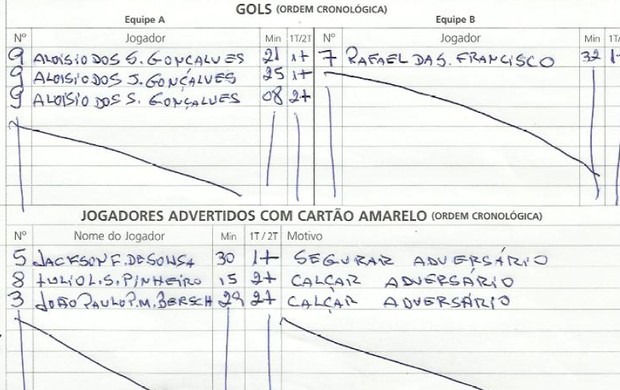 GOLS (ORDEM CRONOLÓGICA)
Equipe A Equipe B
Nº Jogador Min 1T/2T Nº Jogador Min 1T
9 ALOISIO DOS S. GONÇALVES 21 1t 7 RAFAEL DA S. FRANCISCO 32 1
9 ALOISIO DOS S. GONÇALVES 25 1t
9 ALOISIO DOS S. GONÇALVES 08 2t
JOGADORES ADVERTIDOS COM CARTÃO AMARELO (ORDEM CRONOLÓGICA)
Nº Nome do Jogador Min 1T / 2T Motivo
5 JACKSON F. DE SOUSA 30 1t SEGURAR ADVERSÁRIO
8 TULIO L. S. PINHEIRO 15 2t CALÇAR ADVERSÁRIO
3 JOÃO PAULO P. M. BERSCH 29 2t CALÇAR ADVERSÁRIO